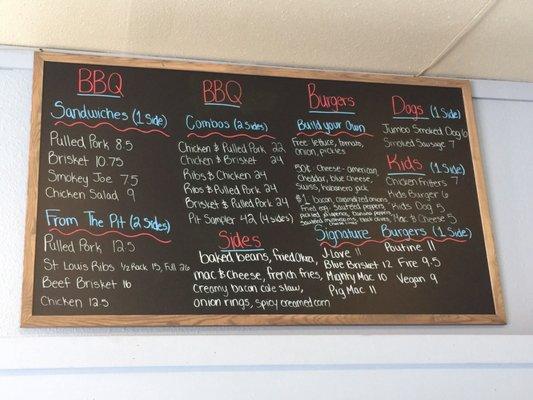 BBQ
Sandwiches (1 Side)
Pulled Pork 8.5
Brisket 10.75
Smokey Joe 7.5
Chicken Salad 9
From The Pit (2 Sides)
Pulled Pork 12.5
St Louis Ribs 1/2 Rack 15, Full 26
Beef Brisket 16
Chicken 12.5
BBQ
Combos (2 sides)
Chicken & Pulled Pork 22
Chicken & Brisket 24
Ribs & Chicken 24
Ribs & Pulled Pork 24
Brisket & Pulled Pork 24
Pit Sampler 42 (4 sides)
Sides
baked beans, fried okra,
mac & cheese, french fries,
Creamy bacon cole slaw,
onion rings, spicy creamed corn
Burgers
Build your Own
Free lettuce, tomato,
onion, pickles
50¢ Cheese - american,
cheddar, blue cheese,
swiss, habanero jack
$1 bacon, caramelized onions
Fried egg, sauteed peppers,
pickled jalapenos, banana peppers,
sauteed mushrooms, black olives,
Signature Burgers (1 Side)
J-Love 11
Blue Brisket 12
Mighty Mac 10
Pig Mac 11
Poutine 11
Fire 9.5
Vegan 9
Dogs (1 Side)
Jumbo Smoked Dog 6
Smoked Sausage 7
Kids (1 Side)
Chicken Fritters 7
Kids Burger 6
Kids Dog 5
Mac & Cheese 5